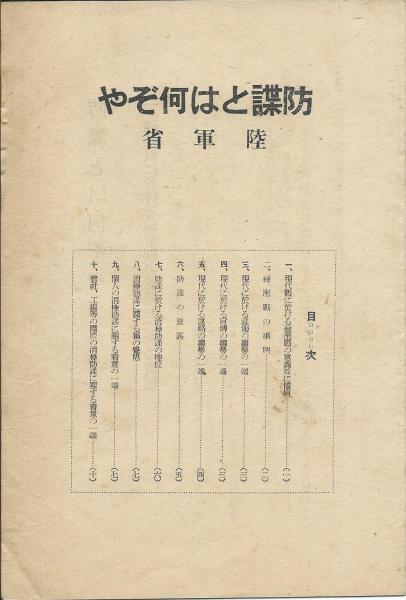 防諜とは何ぞや
陸軍省
目次
一、現代戦に於ける秘密戦の意義並に情勢……(一)
二、秘密戦の構成……(二)
三、現代に於ける諜報の趨勢の一端……(三)
四、現代に於ける宣傳の趨勢の一端……(三)
五、現代に於ける謀略の趨勢の一端……(四)
六、防諜の意義……(五)
七、防諜に於ける消極防諜の地位……(六)
八、消極防諜に關する軍の……(七)
九、個人の消極防諜に關する着意の一端……(七)
十、會社、工場等の團體の消極防諜に關する着意の一端……(十)